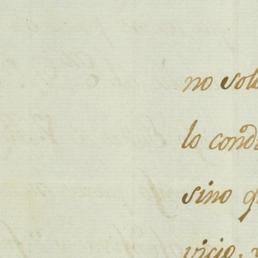 no solo
lo cond
sino q
vicio,